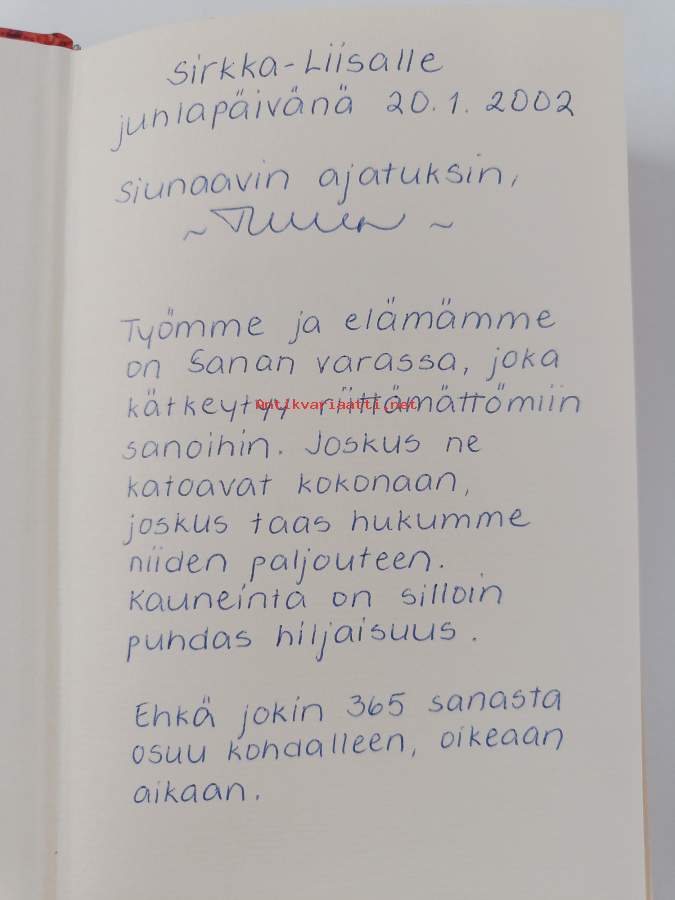 Sirkka-Liisalle
juhlapäivänä 20.1.2002
siunaavin ajatuksin,
Työmme ja elämämme
on Sanan varassa, joka
kätkeytyy riittämättömiin
Antikvariaatti.net
sanoihin. Joskus ne
katoavat kokonaan,
joskus taas hukumme
niiden paljouteen.
Kauneinta on silloin
puhdas hiljaisuus.
Ehkä jokin 365 sanasta
osuu kohdalleen, oikeaan
aikaan.